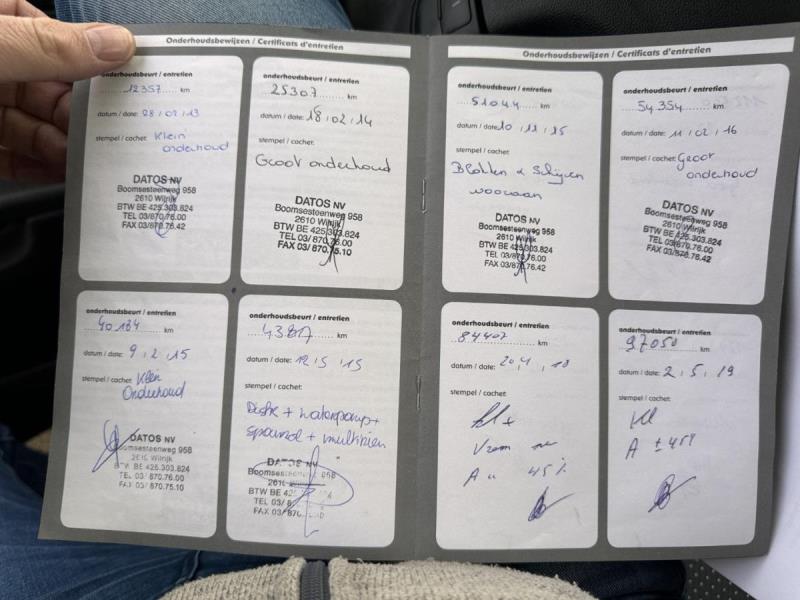 Onderhoudsbewijzen / Certificats d'entretien
onderhoudsbeurt / entretien
12357 km
datum / date: 28 / 02 / 13
stempel / cachet: Klein
onderhoud
DATOS NV
Boomsesteenweg 958
2610 Wilrijk
BTW BE 425.303.824
TEL 03/870.76.00
FAX 03/870.76.42
onderhoudsbeurt / entretien
25307 km
datum / date: 18 / 02 / 14
stempel / cachet:
Groot onderhoud
DATOS NV
Boomsesteenweg 958
2610 Wilrijk
BTW BE 425.303.824
TEL 03/ 870.76.00
FAX 03/ 870.75.10
onderhoudsbeurt / entretien
40184 km
datum / date: 9 / 2 / 15
stempel / cachet: Klein
Onderhoud
DATOS NV
Boomsesteenweg 958
2610 Wilrijk
BTW BE 425.303.824
TEL 03/ 870.76.00
FAX 03/ 870.75.10
onderhoudsbeurt / entretien
km
datum / date: 12 / 5 / 15
stempel / cachet:
+ waterpomp +
+ multirien
DATOS NV
Boomsesteenweg 958
2610
BTW BE
TEL 03/
FAX 03/870
Onderhoudsbewijzen / Certificats d'entretien
onderhoudsbeurt / entretien
51044 km
datum / date: 10 / 11 / 15
stempel / cachet:
Blokken & Schijven
vooraan
DATOS NV
Boomsesteenweg 958
2610 Wilrijk
BTW BE 425.303.824
TEL 03/ 870.76.00
FAX 03/ 870.76.42
onderhoudsbeurt / entretien
54354 km
datum / date: 11 / 02 / 16
stempel / cachet: Groot
onderhoud
DATOS NV
Boomsesteenweg 958
2610 Wilrijk
BTW BE 425.303.824
TEL 03/870.76.00
FAX 03/870.76.42
onderhoudsbeurt / entretien
84407 km
datum / date: 20 / 4 / 18
stempel / cachet:
A 45%
onderhoudsbeurt / entretien
97050 km
datum / date: 2 / 5 / 19
stempel / cachet:
Kl
A ±